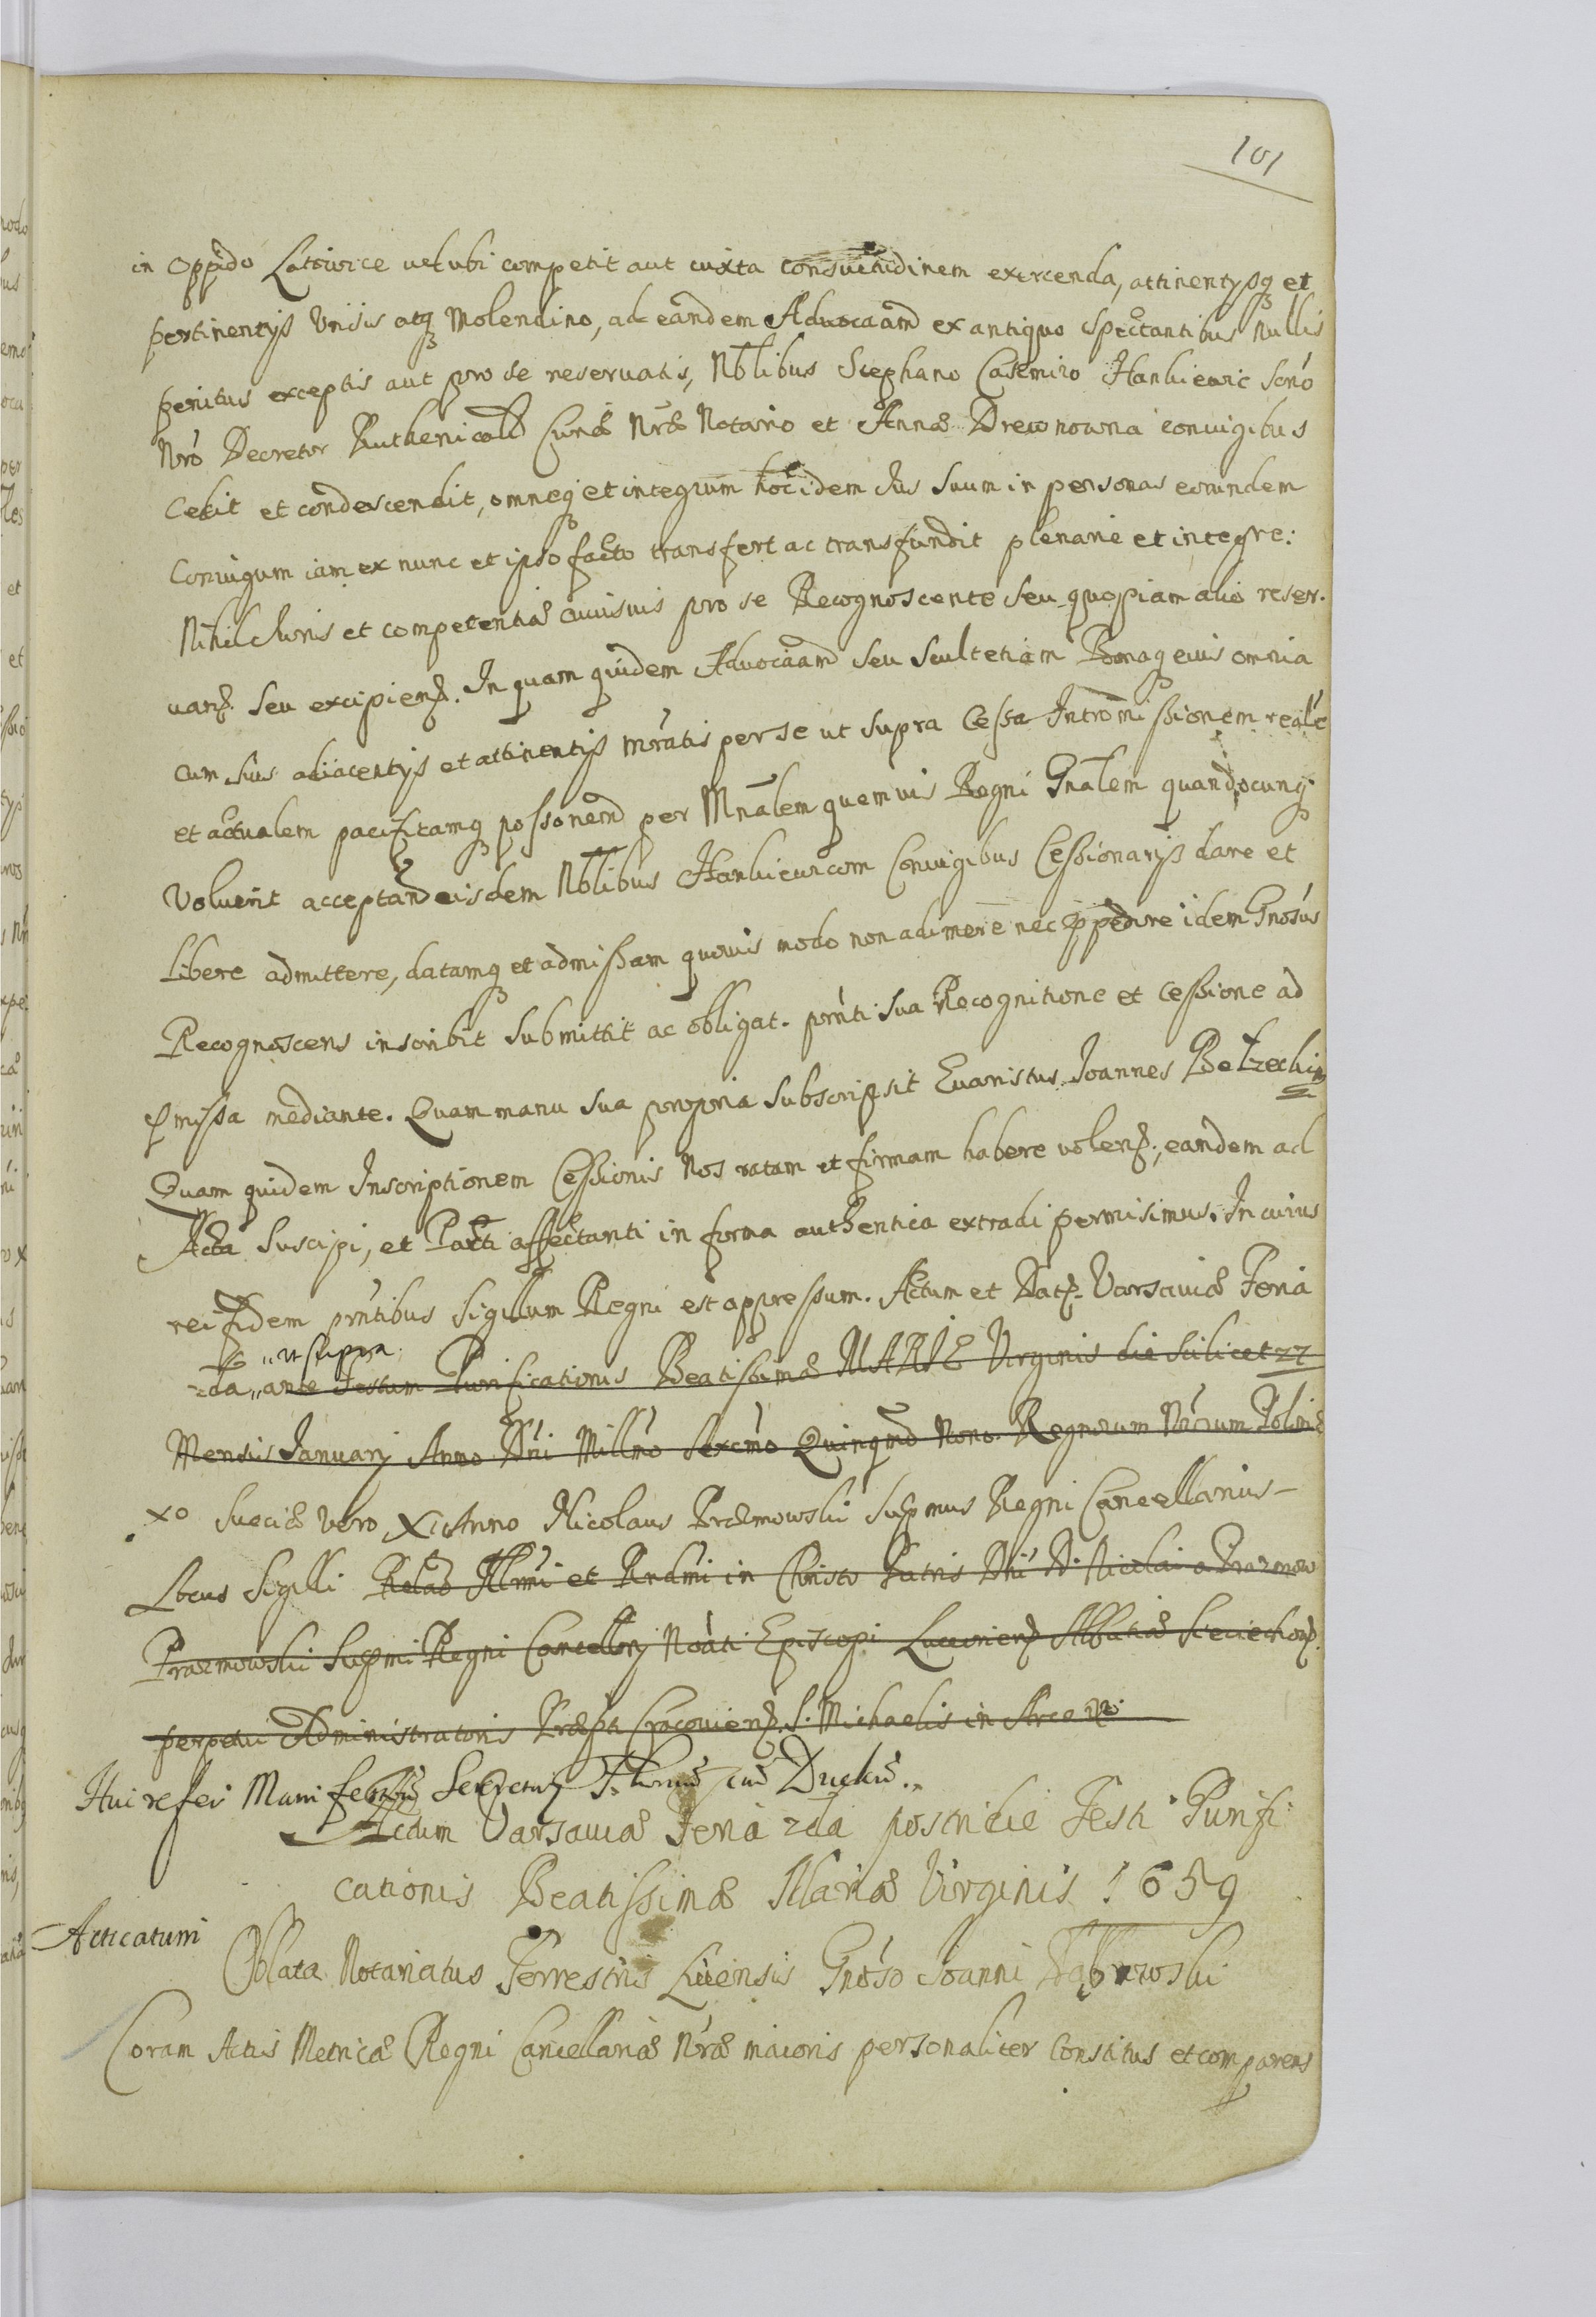 101
in Oppido Latowice uel ubi competit aut iuxta consuetudinem exercenda, attinentijsq3 et
pertinentijs Vniis atq3 Molendino, ad eandem Aduocaām ex antiquo spectantibus Nullis
penitus exceptis aut pro se reseruatis, Nblibus Stephano Casimiro Hankiewic Scrō
Nrō Decretor Ruthenicalū Curiæ Nræ Notario et Annæ Drewnowna coniugibus
Cedit et condescendit, omneq3 et integrum hoc idem Ius suum in personas eorundem
Coniugum iam ex nunc et ipso facto transfert ac transfundit plenarie et integre:
Nihil Iuris et competentiæ cuiusuis pro se Recognoscente seu quopiam alio reser.
uan. seu excipien. In quam quidem Aduocaām seu Scultetiam Bonaq3 eius omnia
cum suis adiacentijs et attinentijs mōratis per se ut supra Cessa Intromissionem realē
et actualem pacificamq3 possonem per Mnālem quemuis Regni Gnālem quandocunq3
Voluerit acceptand eisdem Nblibus Hankiewicom Coniugibus Cessionarijs dare et
Libere admittere, datamq3 et admissam quouis modo non adimere nec impedire idem Gnosus
Recognoscens inscribit submittit ac obligat. prnti sua Recognitione et Cessione ad
pmissa mediante. Quam manu sua propria subscripsit Euaristus Joannes Belzecki
Quam quidem Inscriptionem Cessionis Nos ratam et firmam habere volen., eandem ad
Acta suscipi, et Parti affectanti in forma authentica extradi permisimus. In cuius
rei fidem prntibus Sigillum Regni est appressum. Actum et Dat. Varsauiæ Feria
ut supra
2da ante Festum Purificationis Beatissimæ MARIÆ Virginis die scilicet 27
Mensis Januarij Anno Dni Millmo Sexcmo Quinqmo Nono. Regnorum Nrorum Poloniæ
Xo Sueciæ vero XI Anno Nicolaus Præzmowski Supmus Regni Cancellarius
Locus Sigilli Relaō Illmi et Rndmi in Christo Patris Dni D. Nicolai a Prazmow
Prazmowski Supmi Regni Cancellarij Noāti Episcopi Luceorien. Abbatiæ Sieciechov.
perpetui Administratoris Præpti Cracovien. S. Michaelis in Arce
Huc refer
Actum Varsauiæ Feria 2da postridie Festi Purifi
cationis Beatissimæ Mariæ Virginis 1659
Acticatum
Oblata Notariatus Terrestris Liuensis Gnoso Joanni
Coram Actis Metricæ Regni Cancellariæ Nræ maioris personaliter Constitus et comparens